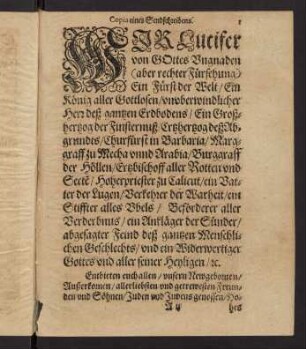 Copia eines Sendschreibens. 1
WIR Lucifer
von GOttes Ungnaden
(aber rechter Fürsehung)
Ein Fürst der Welt / Ein
König aller Gottlosen / vnvberwindlicher
Herr deß gantzen Erdbodens / Ein Groß-
hertzog der Finsterniß / Ertzhertzog deß Ab-
grundts / Churfürst in Barbaria / Marg-
graff zu Mecha vnnd Arabia / Burggraff
der Höllen / Ertzbischoff aller Rotten vnd
Sectē / Hoherpriester zu Calicut / ein Vat-
ter der Lugen / Verkehrer der Warheit / ein
Stiffter alles Vbels / Beförderer aller
Verderbnis / ein Ankläger der Sünder /
abgesagter Feind deß gantzen Menschli-
chen Geschlechts / vnd ein Widerwertiger
Gottes vnd aller seiner Heyligen / ꝛc.
Entbieten euch allen / vnsern Newgebornen /
Außerkornen / allerliebsten vnd getrewesten Freun-
den vnd Söhnen / Juden vnd Judens genossen / Ho-
A ij hes